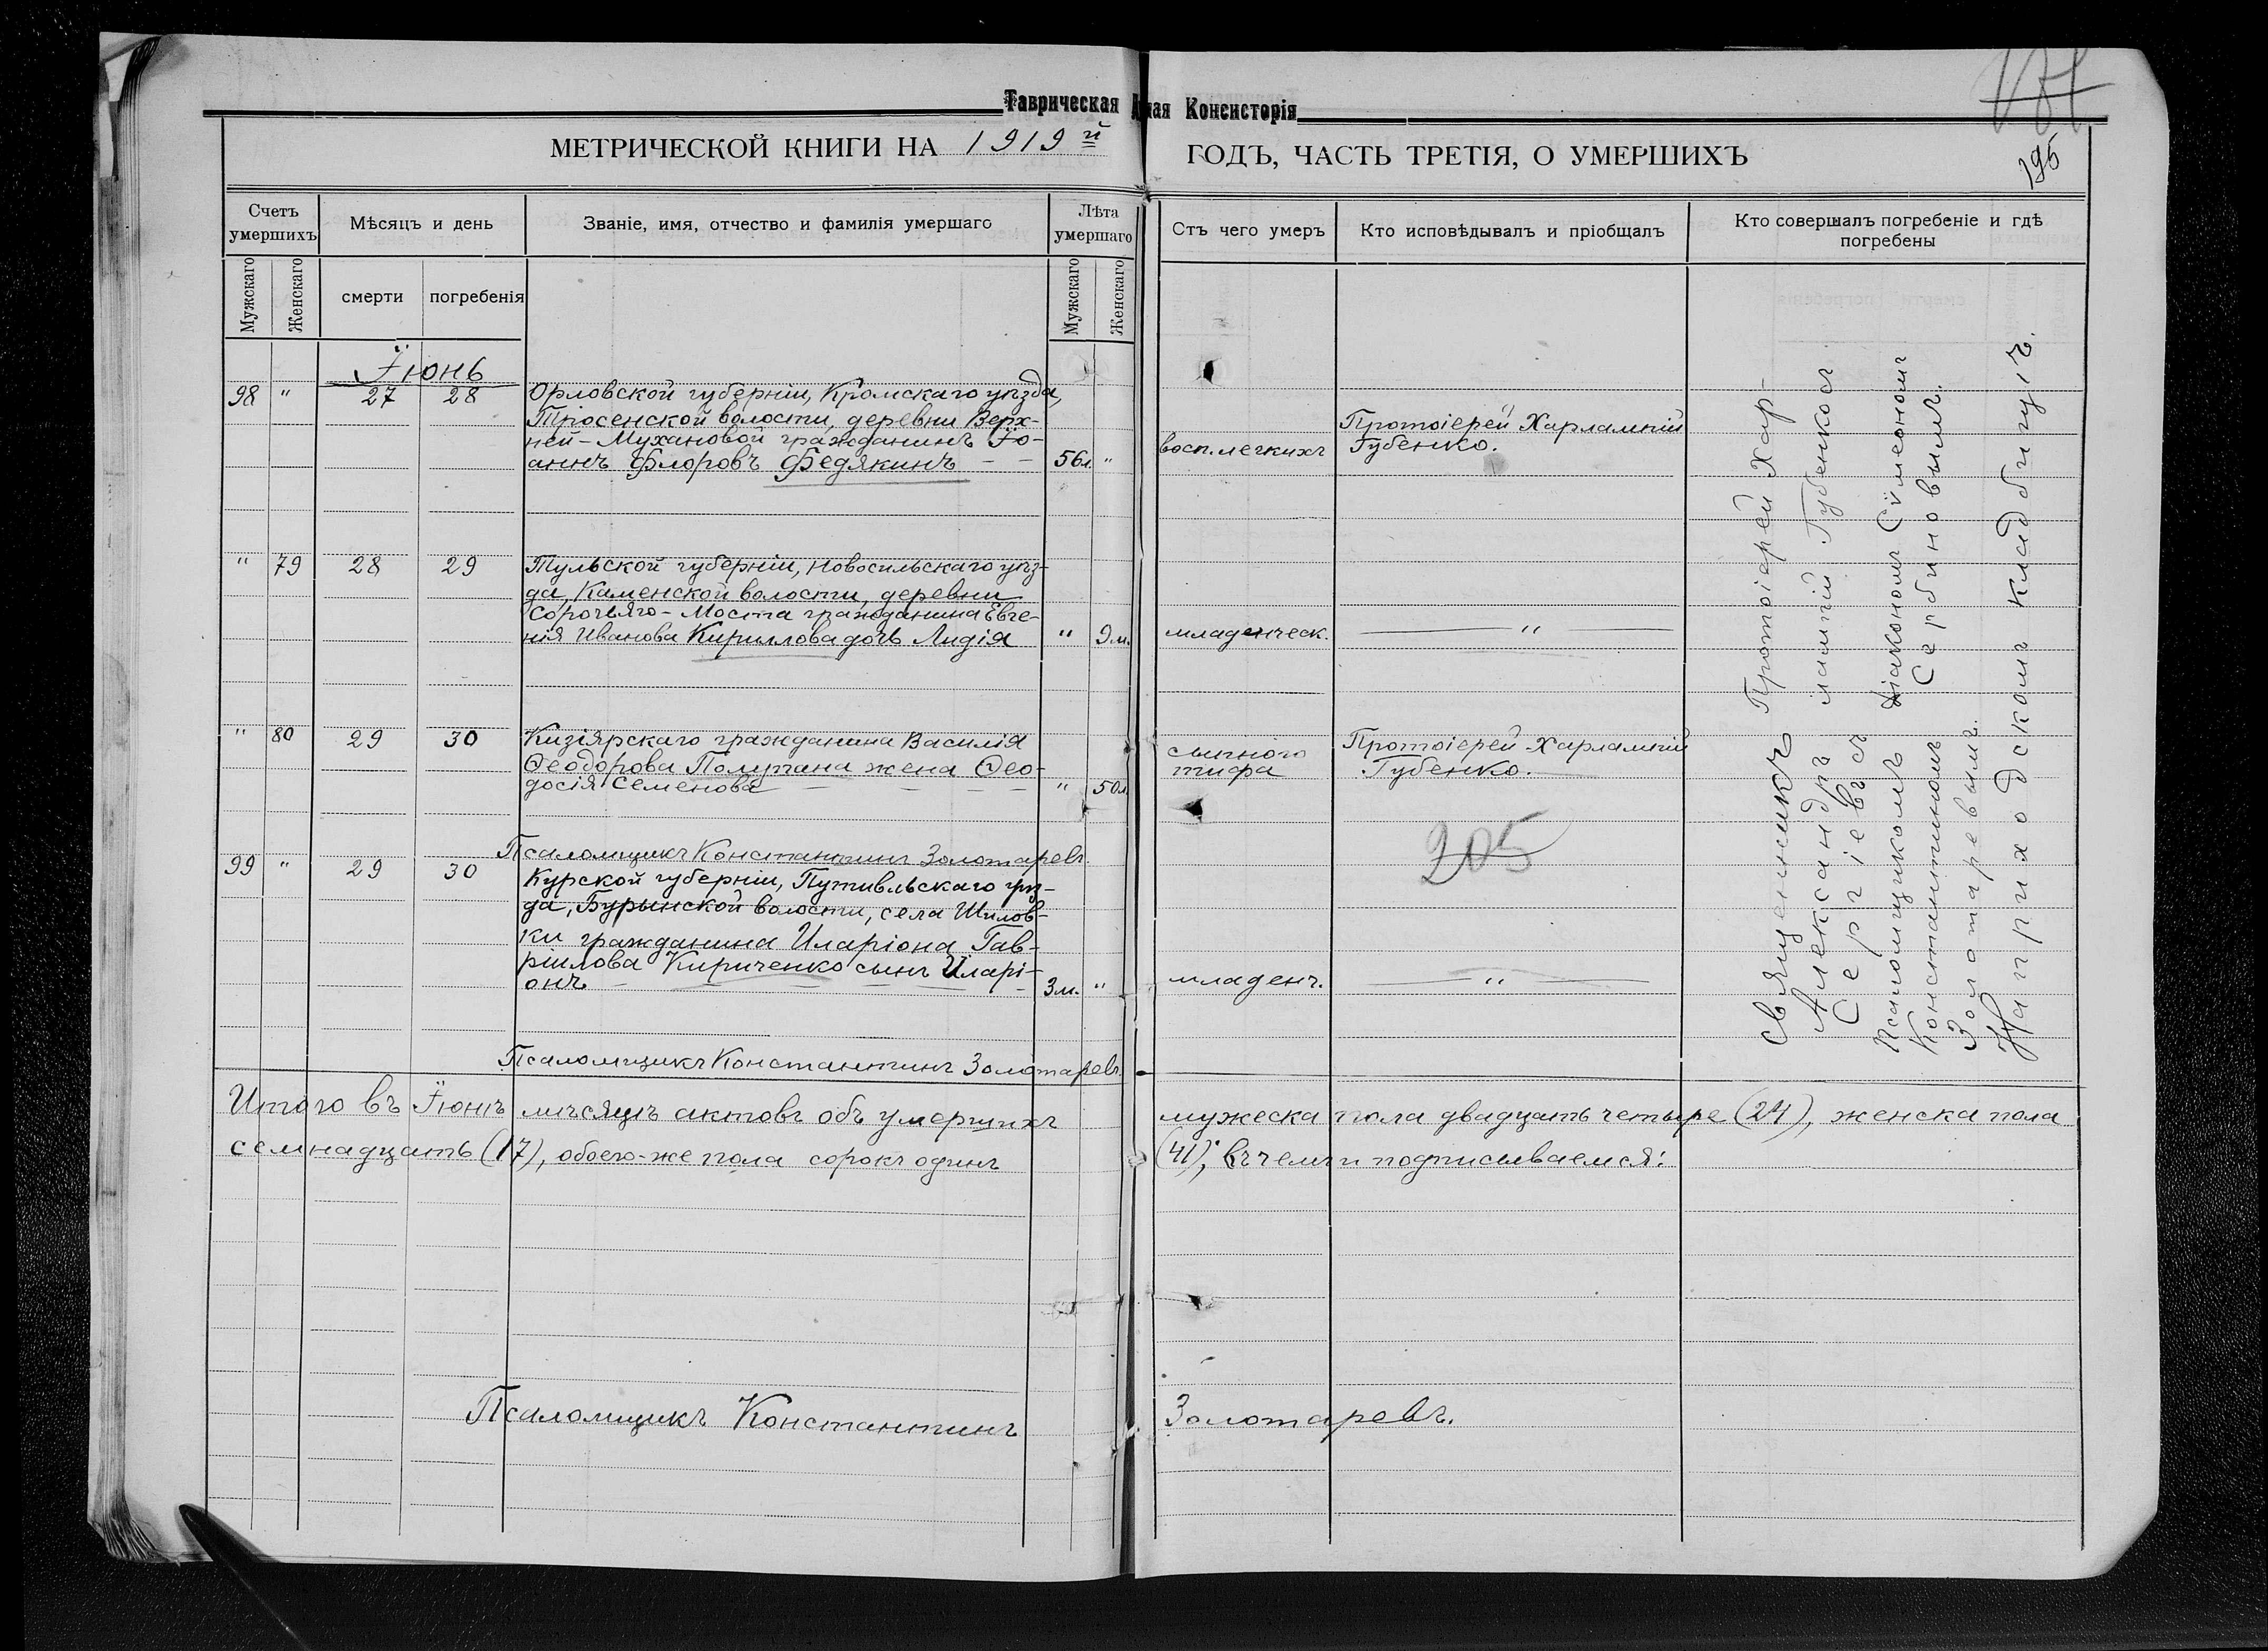 Таврическая
ная Консисторія
МЕТРИЧЕСКОЙ КНИГИ НА 1919й
ГОДЪ, ЧАСТЬ ТРЕТІЯ, О УМЕРШИХЪ
195
Счетъ умершихъ
Мѣсяцъ и день
Званіе, имя, отчество и фамилія умершаго
Лѣта умершаго
Стъ чего умеръ
Кто исповѣдывалъ и пріобщалъ
Кто совершалъ погребеніе и гдѣ погребены
Мужскаго
Женскаго
смерти
погребенія
Мужскаго
Женскаго
Їюнь
98 " 27 28 Орловской губерніи, Кромскаго уѣзда,
Тросенской волости, деревни Верх-
ней-Мухановой гражданинъ Їо-
аннъ Флоровъ Федякинъ 56л. "
восп. легкихъ
Протоіерей Харлампій
Губенко.
" 79 28 29 Тульской губерніи, Новосильскаго уѣз-
да, Каменской волости, деревни
Сорочьяго-Моста гражданина Евге-
нія Иванова Кириллова дочь Лидія " 9м.
младенческ. "
" 80 29 30 Кизіярскаго гражданина Василія
Ѳеодорова Полупана жена Ѳео-
досія Семенова " 50л.
сыпного
тифа
Протоіерей Харлампій
Губенко.
205
Псаломщикъ Константинъ Золотаревъ.
99 " 29 30 Курской губерніи, Путивльскаго уѣз-
да, Бурынской волости, села Шилов-
ки гражданина Иларіона Гав-
ріилова Кириченко сынъ Иларі-
онъ 3м. "
младенч. "
Псаломщикъ Константинъ Золотаревъ.
Священникъ Протоіерей Хар-
Александръ лампій Губенко съ
Сергіевъ съ
Псаломщикомъ діакономъ Сѵмеономъ
Константиномъ Сербиновымъ.
Золотаревымъ.
На приходскомъ кладбищѣ.
Итого въ Їюнѣ мѣсяцѣ актовъ объ умершихъ мужеска пола двадцать четыре (24), женска пола
семнадцать (17), обоего-же пола сорокъ одинъ (41), въ чемъ и подписываемся:
Псаломщикъ Константинъ Золотаревъ.